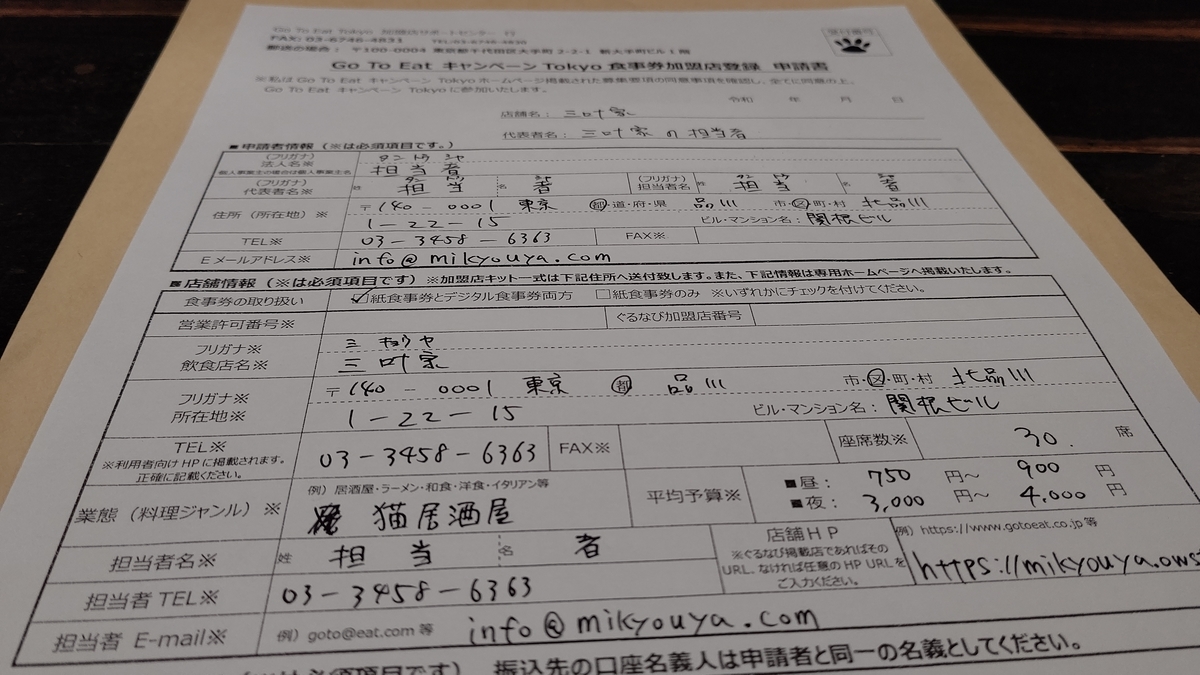 Go To Eat Tokyo 加盟店サポートセンター 行
FAX: 03-6746-4831 TEL:03-6745-4830
郵送の場合： 〒100-0004 東京都千代田区大手町2-2-1 新大手町ビル1階
受付番号
Go To Eat キャンペーン Tokyo 食事券加盟店登録 申請書
※私は Go To Eat キャンペーン Tokyoホームページ掲載された募集要項の同意事項を確認し、全てに同意の上、
Go To Eat キャンペーン Tokyoに参加いたします。
令和 年 月 日
店舗名： 三叶家
代表者名： 三叶家の担当者
■ 申請者情報（※は必須項目です。）
(フリガナ) タントウシャ
法人名※ 担当者
個人事業主の場合は個人事業主名
(フリガナ) 代表者名※ 姓 タントウ 担当 名 シャ 者 (フリガナ) 担当者名 姓 タントウ 担当 名 シャ 者
住所（所在地）※ 〒140-0001 東京 都・道・府・県 品川 市・区・町・村 北品川
1-22-15 ビル・マンション名： 関根ビル
TEL※ 03-3458-6363 FAX※
Eメールアドレス※ info@mikyouya.com
■店舗情報（※は必須項目です）※加盟店キット一式は下記住所へ送付致します。また、下記情報は専用ホームページへ掲載いたします。
食事券の取り扱い ☑紙食事券とデジタル食事券両方 □紙食事券のみ ※いずれかにチェックを付けてください。
営業許可番号※ ぐるなび加盟店番号
フリガナ※ ミキョウヤ
飲食店名※ 三叶家
フリガナ※ 〒140-0001 東京 都 品川 市・区・町・村 北品川
所在地※ 1-22-15 ビル・マンション名： 関根ビル
TEL※ 03-3458-6363 FAX※ 座席数※ 30. 席
※利用者向けHPに掲載されます。
正確に記載ください。
業態（料理ジャンル）※ 例）居酒屋・ラーメン・和食・洋食・イタリアン等
猫居酒屋
平均予算※ ■昼： 750 円～ 900 円
■夜： 3,000 円～ 4,000 円
担当者名※ 姓 担当 名 者
店舗HP
※ぐるなび掲載店であればその
URL、なければ任意のHP URLを
ご入力ください。
例）https://www.gotoeat.co.jp 等
https://mikyouya.ows
担当者 TEL※ 03-3458-6363
担当者 E-mail※ 例）goto@eat.com 等 info@mikyouya.com
は必須項目です） 振込先の口座名義人は申請者と同一の名義としてください。